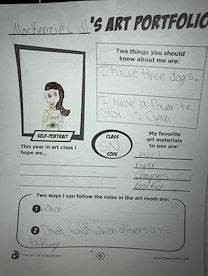 MacKenzie 'S ART PORTFOLIO
Two things you should
know about me are:
I have three dogs.
I have a favorite
color is Cyan
SELF-PORTRAIT
CLASS
5N
CODE
This year in art class I
hope we...
My favorite
art materials
to use are:
Pencil
Paper
crayons
marker
Two ways I can follow the rules in the art room are:
1 Listen
2 Dont talk when others are
talking
The art of education
5